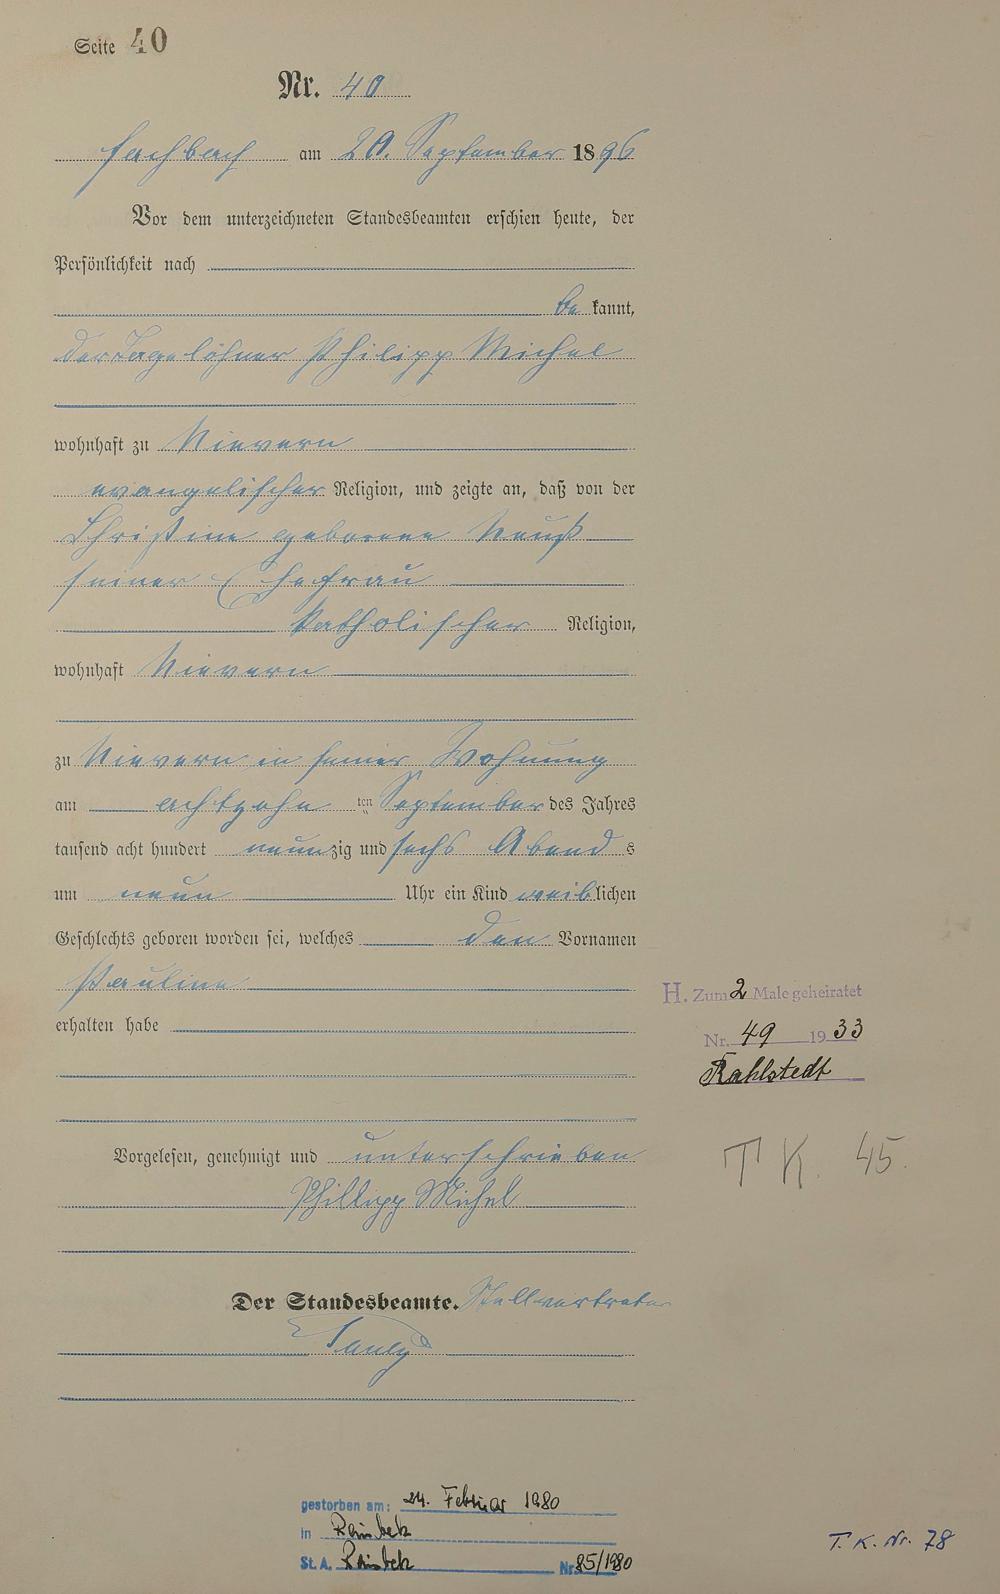 Seite 40
Nr. 40
Fachbach am 20. September 1896
Vor dem unterzeichneten Standesbeamten erschien heute, der
Persönlichkeit nach
be kannt,
der Tagelöhner Philipp Michel
wohnhaft zu Nievern
evangelischer Religion, und zeigte an, daß von der
Christine geborene
seiner Ehefrau
katholischer Religion,
wohnhaft Nievern
zu Nievern in seiner Wohnung
am achtzehn ten September des Jahres
tausend acht hundert neunzig und sechs Abends
um neun Uhr ein Kind weiblichen
Geschlechts geboren worden sei, welches den Vornamen
Pauline
erhalten habe
H. Zum 2 Male geheiratet
Nr. 49 1933
Rahlstedt
T K. 45.
Vorgelesen, genehmigt und unterschrieben
Phillipp Michel
Der Standesbeamte. Stellvertreter
Pauly
gestorben am: 24. Februar 1980
in Reinbek
St. A. Reinbek Nr. 85/1980
T. K. Nr. 78